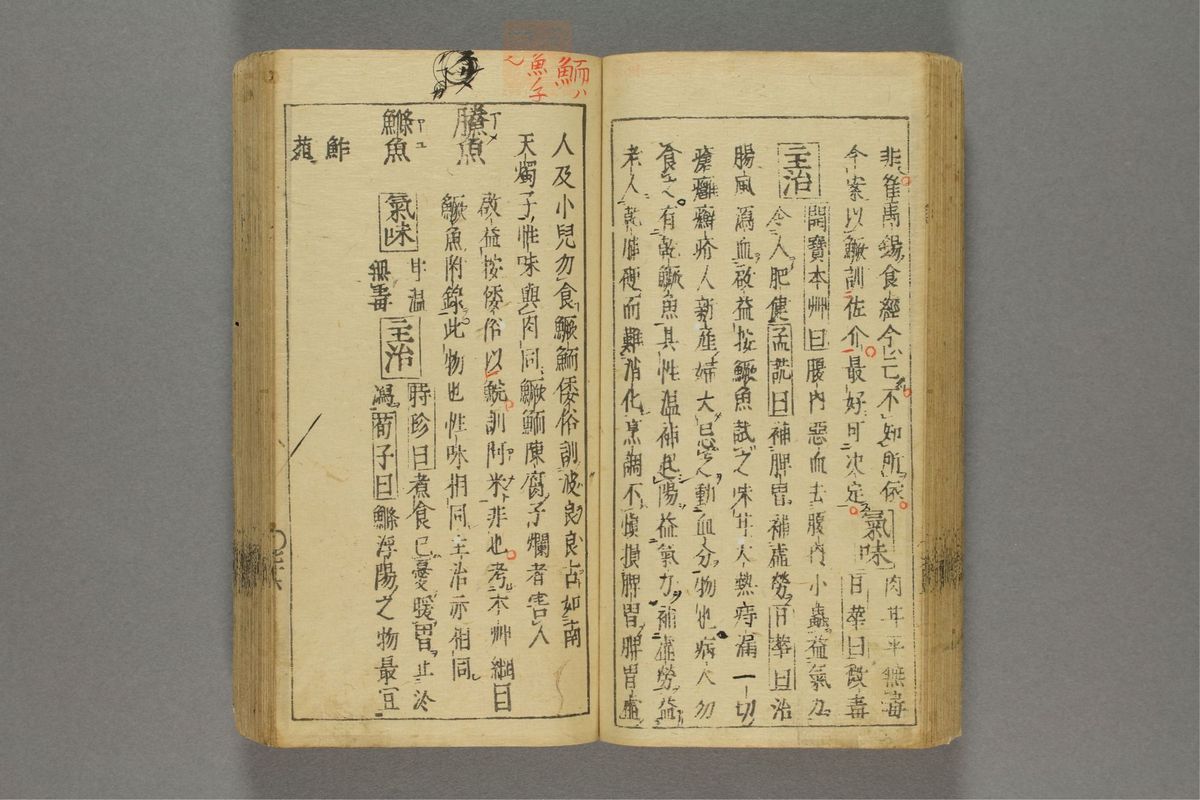 非崔禹錫食經今亡不知所依氣味肉甘平無毒
今案以鱖訓佐介最好可决定日華曰微毒
主治開寶本艸曰腹内惡血去腹内小蟲益氣力
令人肥健孟詵曰補脾胃補虚勞日華曰治
腸風瀉血啟益按鱖魚試之味甘大熱痔漏一切
瘡癰癬疥人新産婦大忌之動血分物也病人勿
食之有乾鱖魚其性温補起陽益氣力補虚勞益
老人乾肺硬而難消化烹調不愼損脾胃脾胃虚
鮞ハ
魚子
人及小兒勿食鱖鮞倭俗訓波良良古如南
天燭子性味與肉同鱖鮞陳腐子爛者害人
䲢魚
啟益按倭俗以鯇訓阿米非也考本艸綱目
鱖魚附錄此物也性味相同主治亦相同
鰷魚
氣味甘温無毒主治時珍曰煮食已憂暖胃止冷
瀉荀子曰鰷浮陽之物最宜
鮓
菹